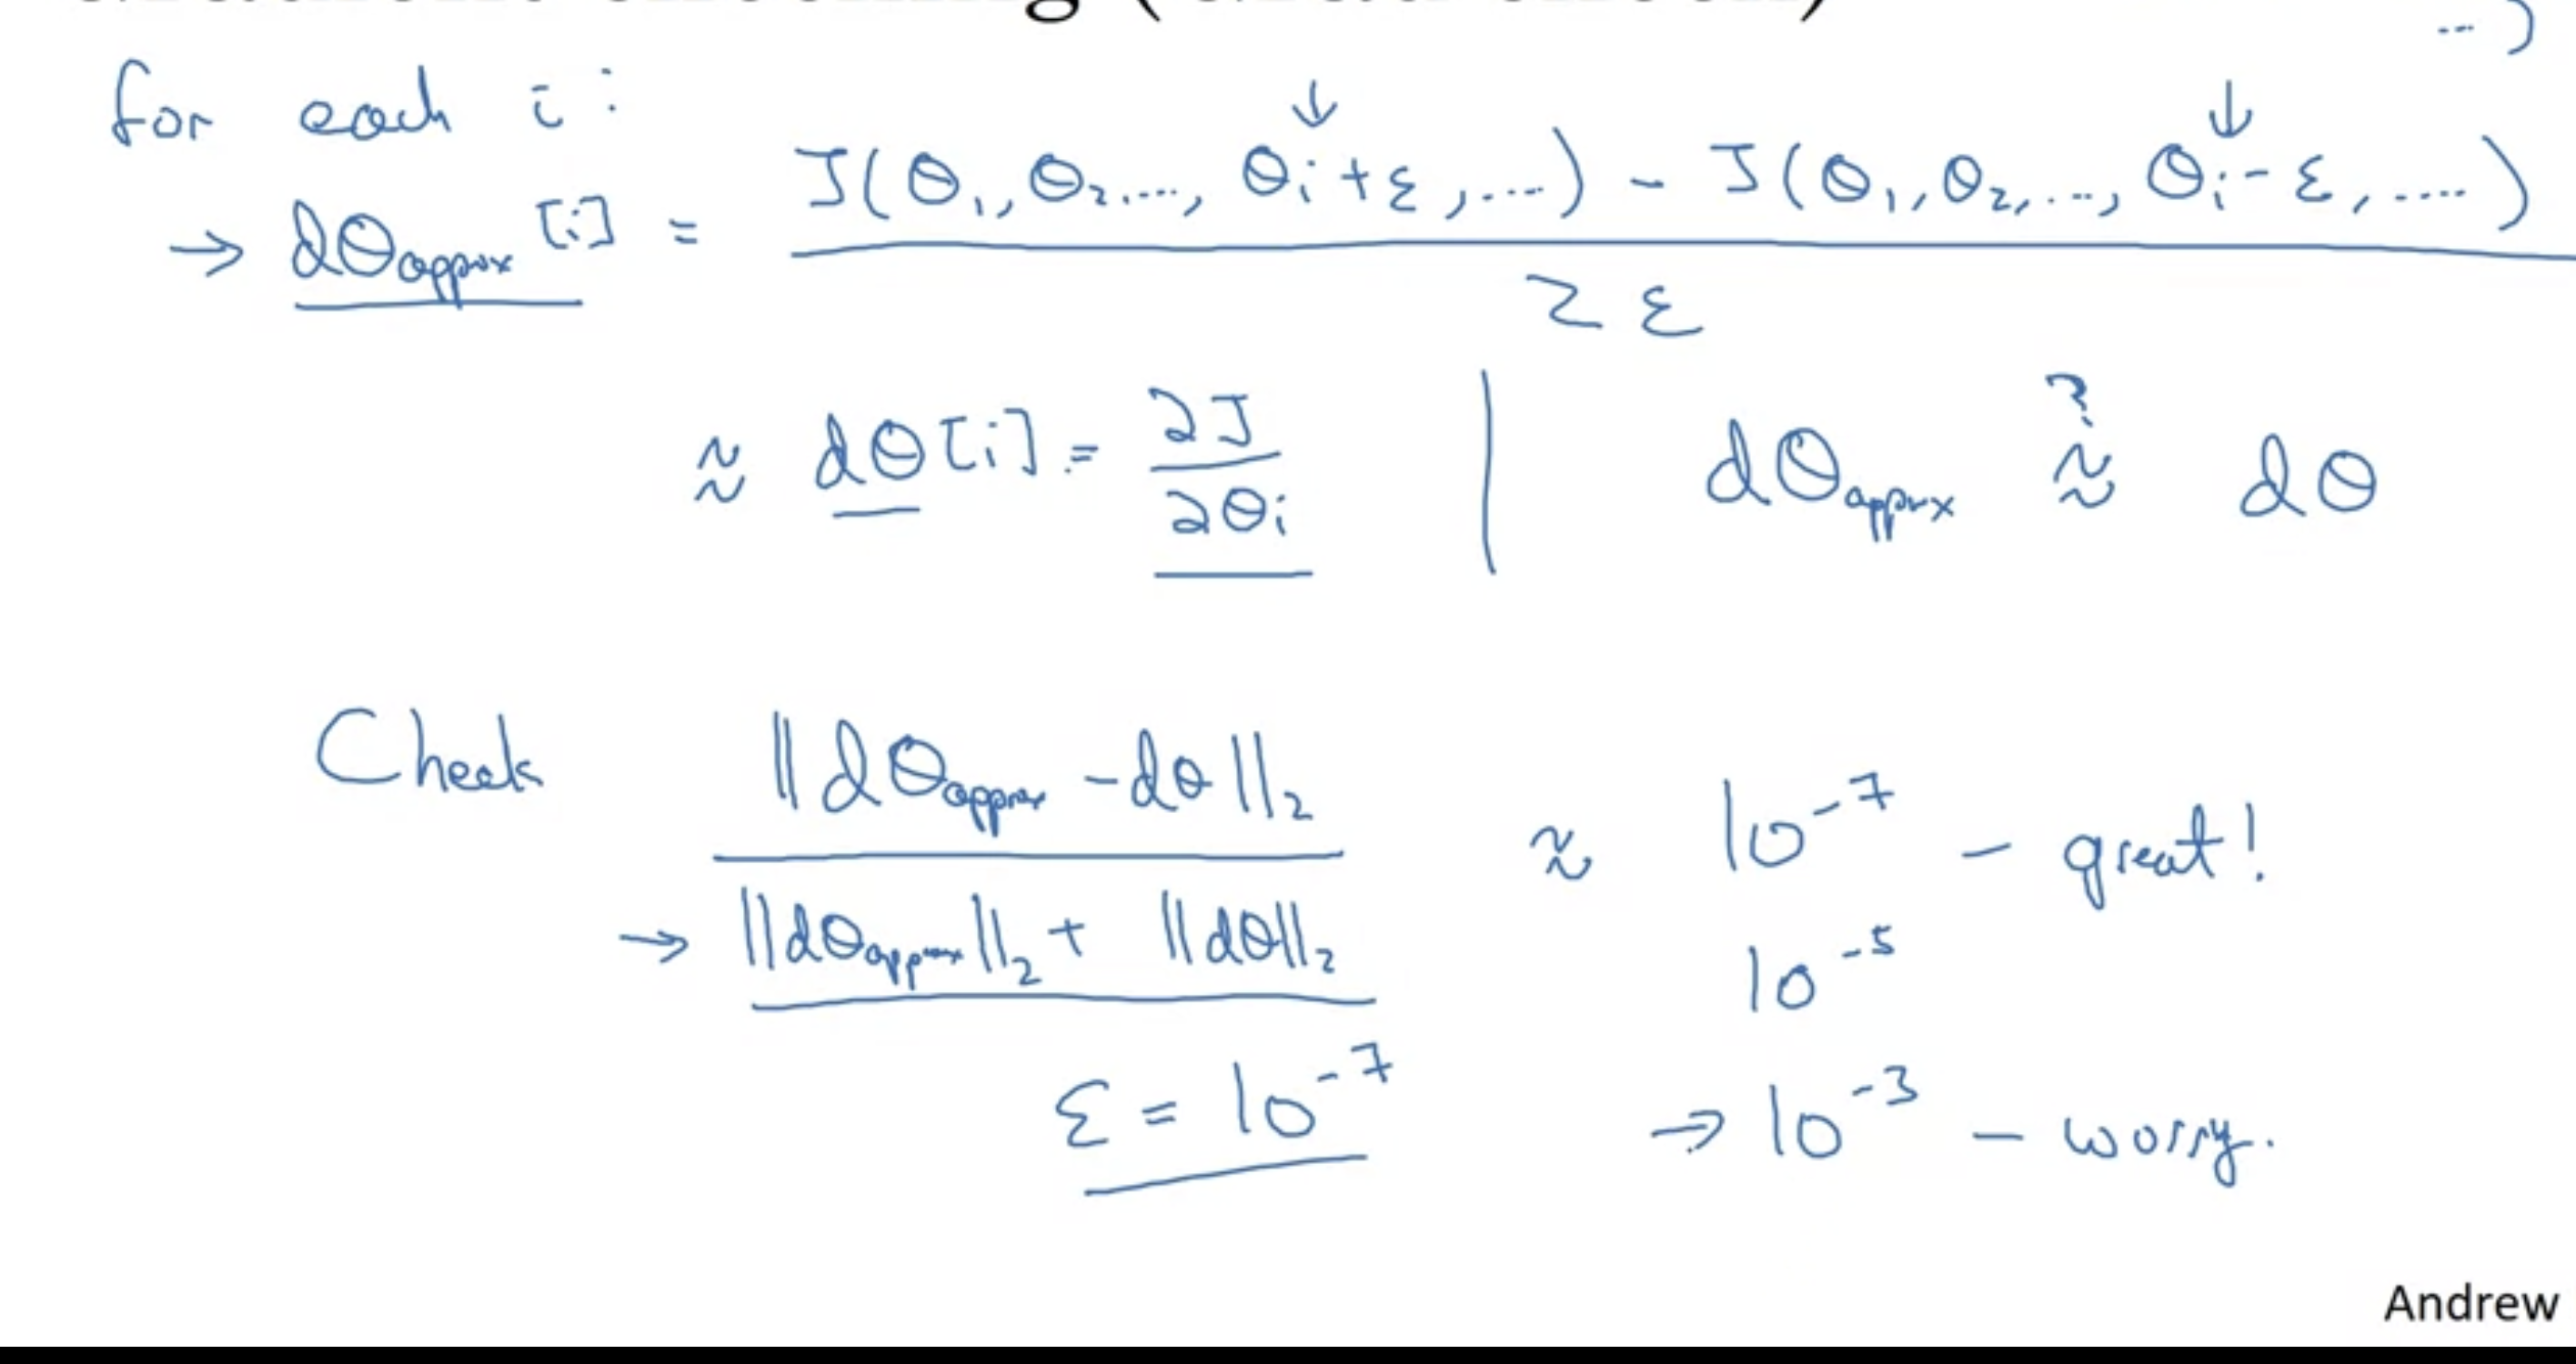 ...)
for each i:
→ dθapprox[i] = J(θ₁,θ₂,...,θᵢ+ε,...) - J(θ₁,θ₂,...,θᵢ-ε,....) / 2ε
≈ dθ[i] = ∂J/∂θᵢ | dθapprox ≈? dθ
Check ||dθapprox - dθ||₂ / ||dθapprox||₂ + ||dθ||₂ ≈ 10⁻⁷ - great!
10⁻⁵
ε = 10⁻⁷ → 10⁻³ - worry.
Andrew